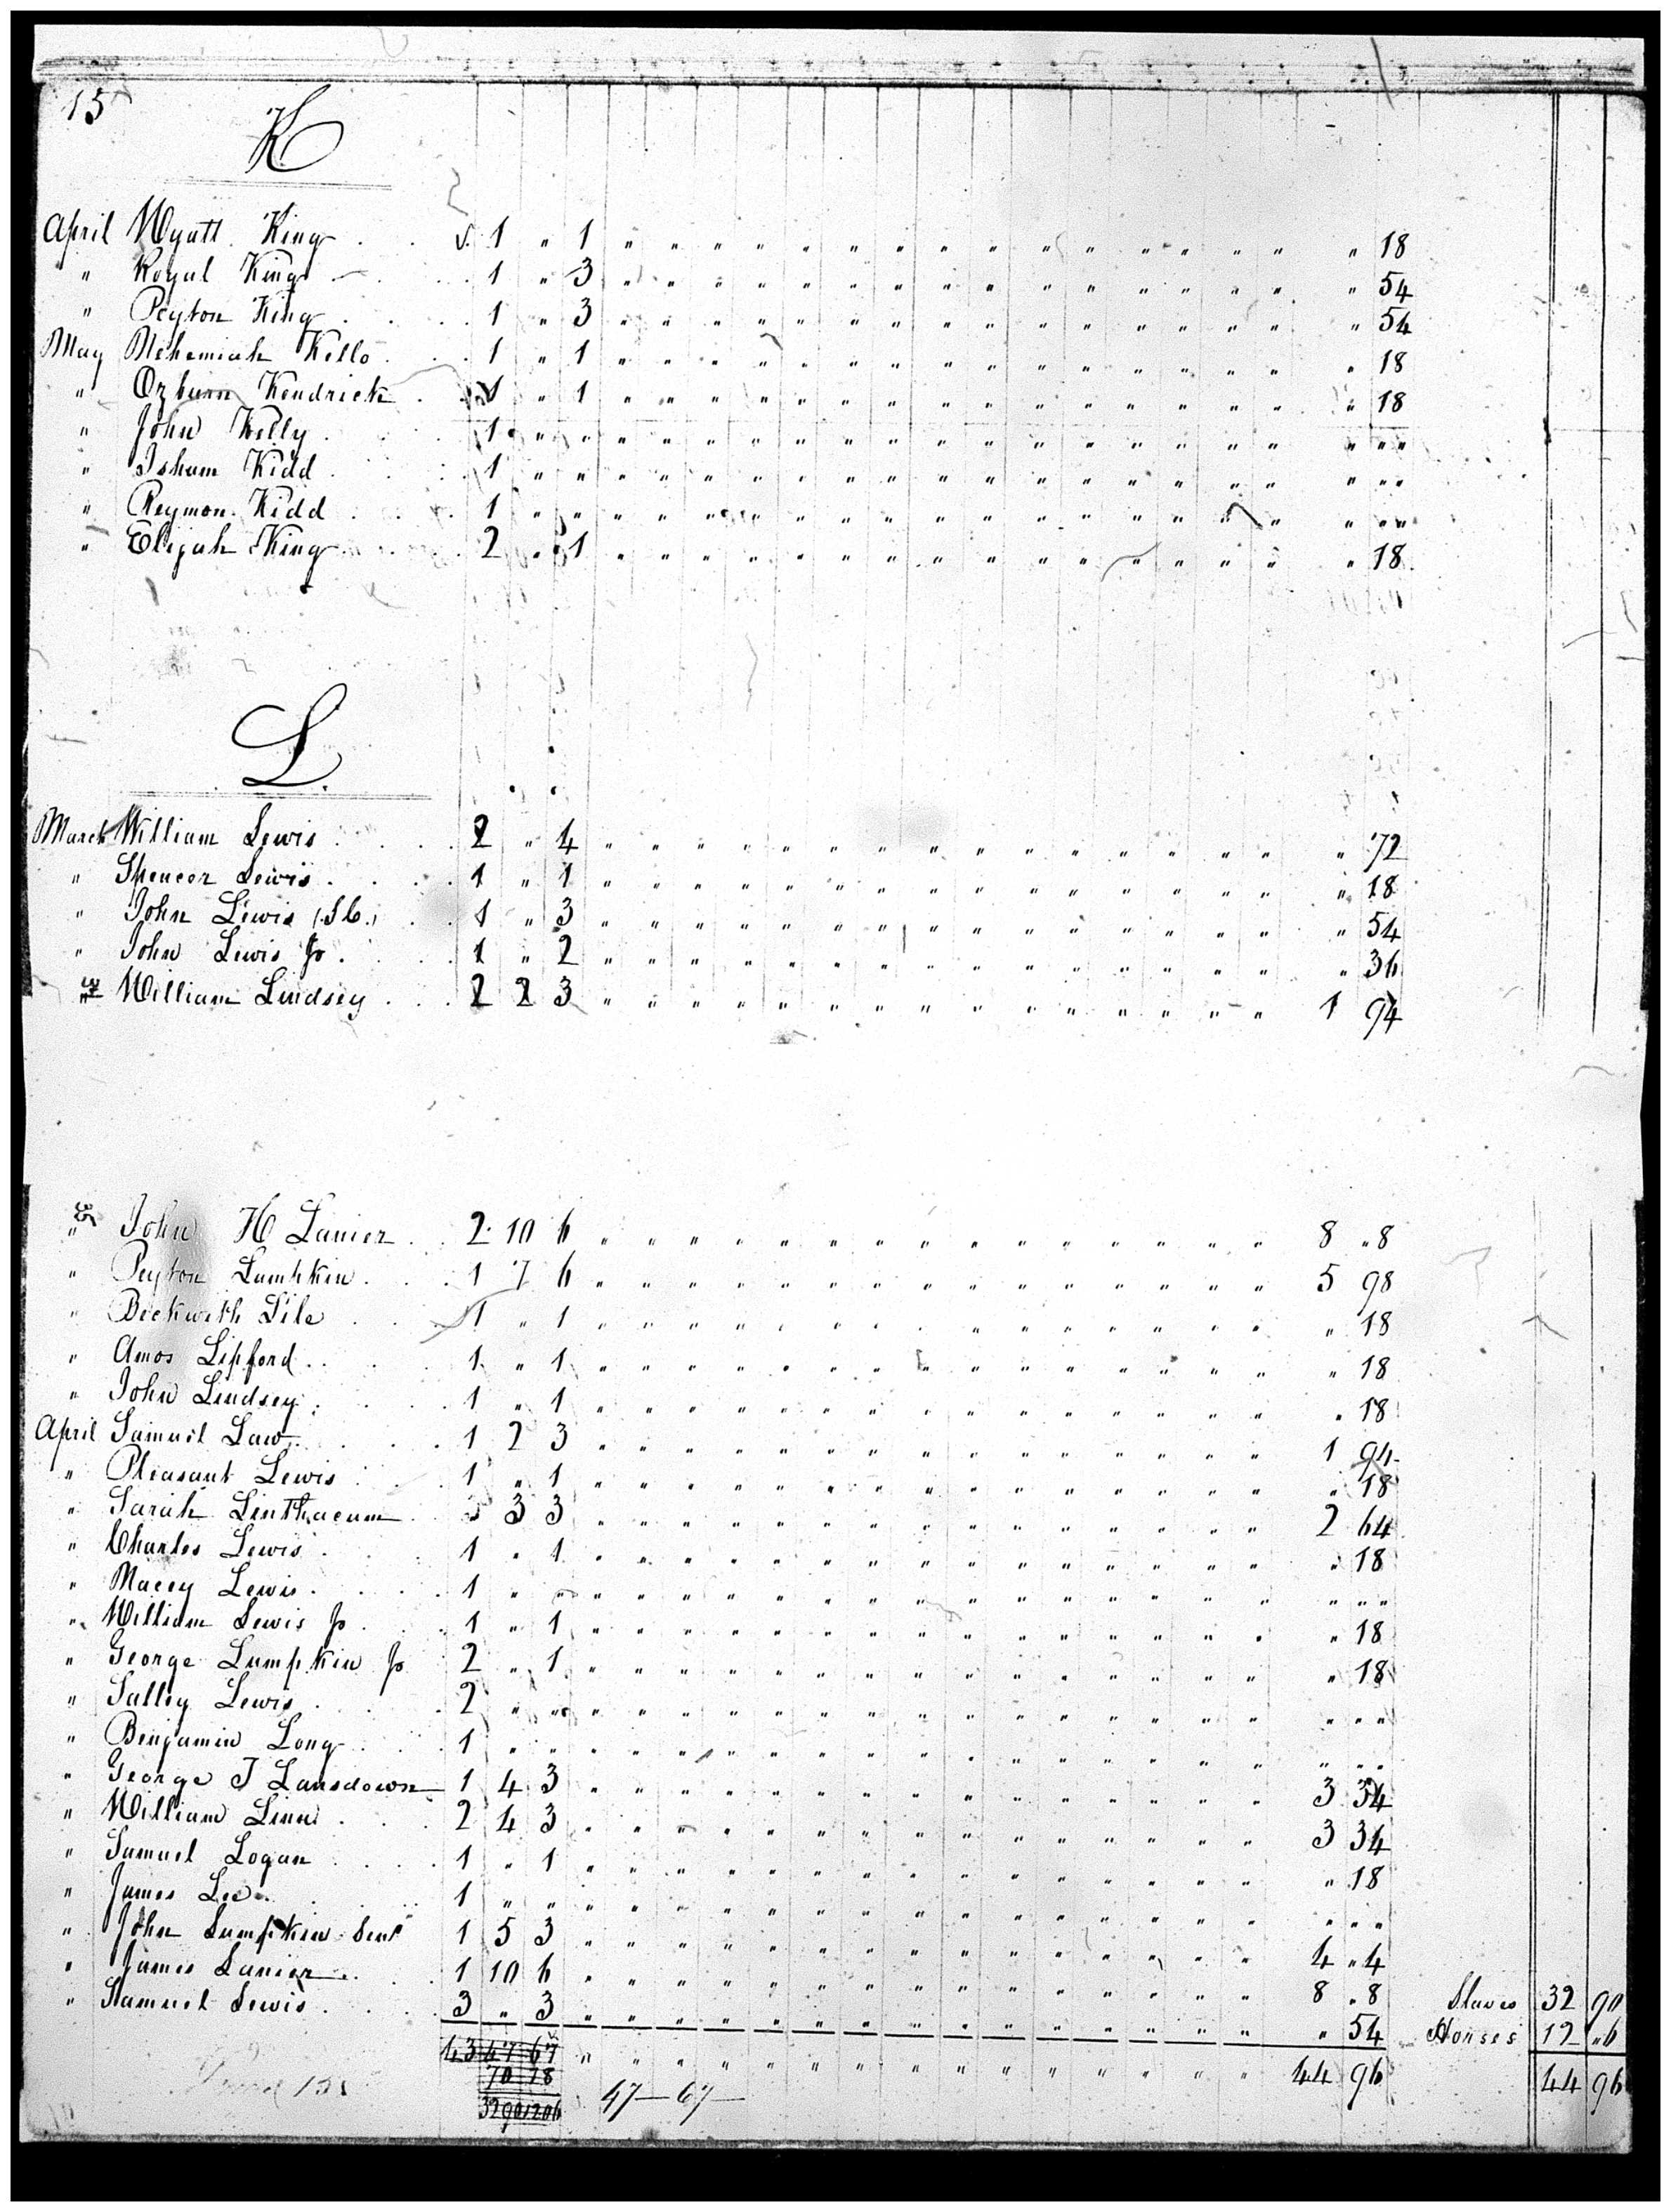 15
K
April Wyatt King . . 1 " 1 " " " " " " " " " " " " " " " " 18
" Royal King . . 1 " 3 " " " " " " " " " " " " " " " " 54
" Peyton King . . 1 " 3 " " " " " " " " " " " " " " " " 54
May Nehemiah Kello . . 1 " 1 " " " " " " " " " " " " " " " " 18
" Ozburn Kendrick . . 1 " 1 " " " " " " " " " " " " " " " " 18
" John Kelly . . 1 " " " " " " " " " " " " " " " " " " " "
" Isham Kidd . . 1 " " " " " " " " " " " " " " " " " " " "
" Reymon Kidd . . 1 " " " " " " " " " " " " " " " " " " " "
" Elijah King . . 2 " 1 " " " " " " " " " " " " " " " " 18
L.
March William Lewis . . 2 " 4 " " " " " " " " " " " " " " " " 72
" Spencer Lewis . . 1 " 1 " " " " " " " " " " " " " " " " 18
" John Lewis (S C.) . . 1 " 3 " " " " " " " " " " " " " " " " 54
" John Lewis Jr . . 1 " 2 " " " " " " " " " " " " " " " " 36
" William Lindsey . . 2 2 3 " " " " " " " " " " " " " " " 1 94
" John H Lanier . . 2 10 6 " " " " " " " " " " " " " " " 8 " 8
" Peyton Lumpkin . . 1 7 6 " " " " " " " " " " " " " " " 5 98
" Beckwith Lile . . 1 " 1 " " " " " " " " " " " " " " " " 18
" Amos Lipford . . 1 " 1 " " " " " " " " " " " " " " " " 18
" John Lindsey . . 1 " 1 " " " " " " " " " " " " " " " " 18
April Samuel Law . . 1 2 3 " " " " " " " " " " " " " " " 1 94
" Pleasant Lewis . . 1 " 1 " " " " " " " " " " " " " " " " 18
" Sarah Linthacum . . 3 3 3 " " " " " " " " " " " " " " " 2 64
" Charles Lewis . . 1 " 1 " " " " " " " " " " " " " " " " 18
" Macey Lewis . . 1 " " " " " " " " " " " " " " " " " " " "
" William Lewis Jr . . 1 " 1 " " " " " " " " " " " " " " " " 18
" George Lumpkin Jr 2 " 1 " " " " " " " " " " " " " " " " 18
" Salley Lewis . . 2 " " " " " " " " " " " " " " " " " " " "
" Benjamin Long . . 1 " " " " " " " " " " " " " " " " " " " "
" George T Lansdown 1 4 3 " " " " " " " " " " " " " " " 3 34
" William Linn . . 2 4 3 " " " " " " " " " " " " " " " 3 34
" Samuel Logan . . 1 " 1 " " " " " " " " " " " " " " " " 18
" James Lee . . 1 " " " " " " " " " " " " " " " " " " " "
" John Lumpkin Senr 1 5 3 " " " " " " " " " " " " " " " 4 " 4
" James Lanier . . 1 10 6 " " " " " " " " " " " " " " " 8 " 8 Slaves 32 90
" Samuel Lewis . . 3 " 3 " " " " " " " " " " " " " " " " 54 Horses 12 " 6
43 47 67 " " " " " " " " " " " " " " " 44 96 44 96
70 18 47—67
3290 1206